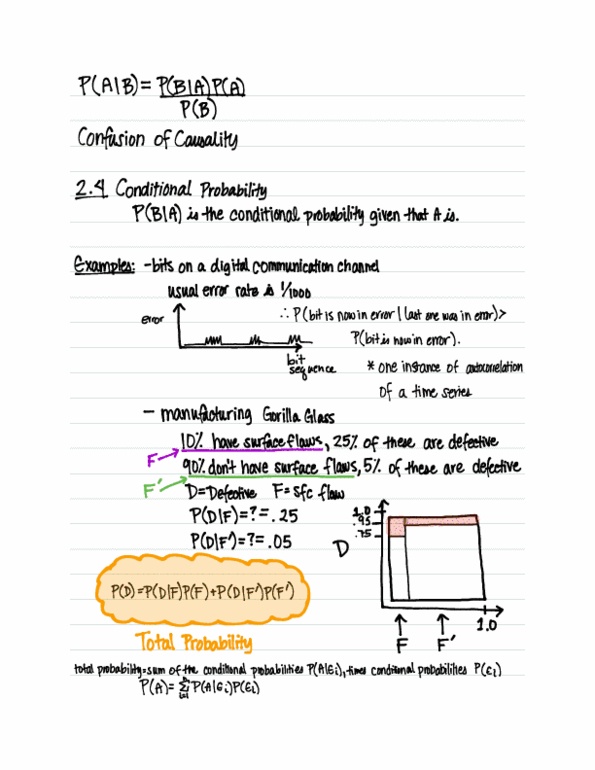 P(A|B) = P(B|A)P(A)
P(B)
Confusion of Causality
2.4 Conditional Probability
P(B|A) is the conditional probability given that A is.
Examples: -bits on a digital communication channel
usual error rate is 1/1000
error
∴ P(bit is now in error | last one was in error) >
P(bit is now in error).
bit
sequence
* one instance of autocorrelation
of a time series
- manufacturing Gorilla Glass
10% have surface flaws, 25% of these are defective
F
90% don't have surface flaws, 5% of these are defective
F'
D=Defective F=sfc flaw
P(D|F)=?=.25
P(D|F')=?=.05
1.0
.95
.75
D
F F' 1.0
P(D)=P(D|F)P(F)+P(D|F')P(F')
Total Probability
total probability=sum of the conditional probabilities P(A|Ei), times conditional probabilities P(Ei)
P(A)= n∑i=1 P(A|Ei)P(Ei)